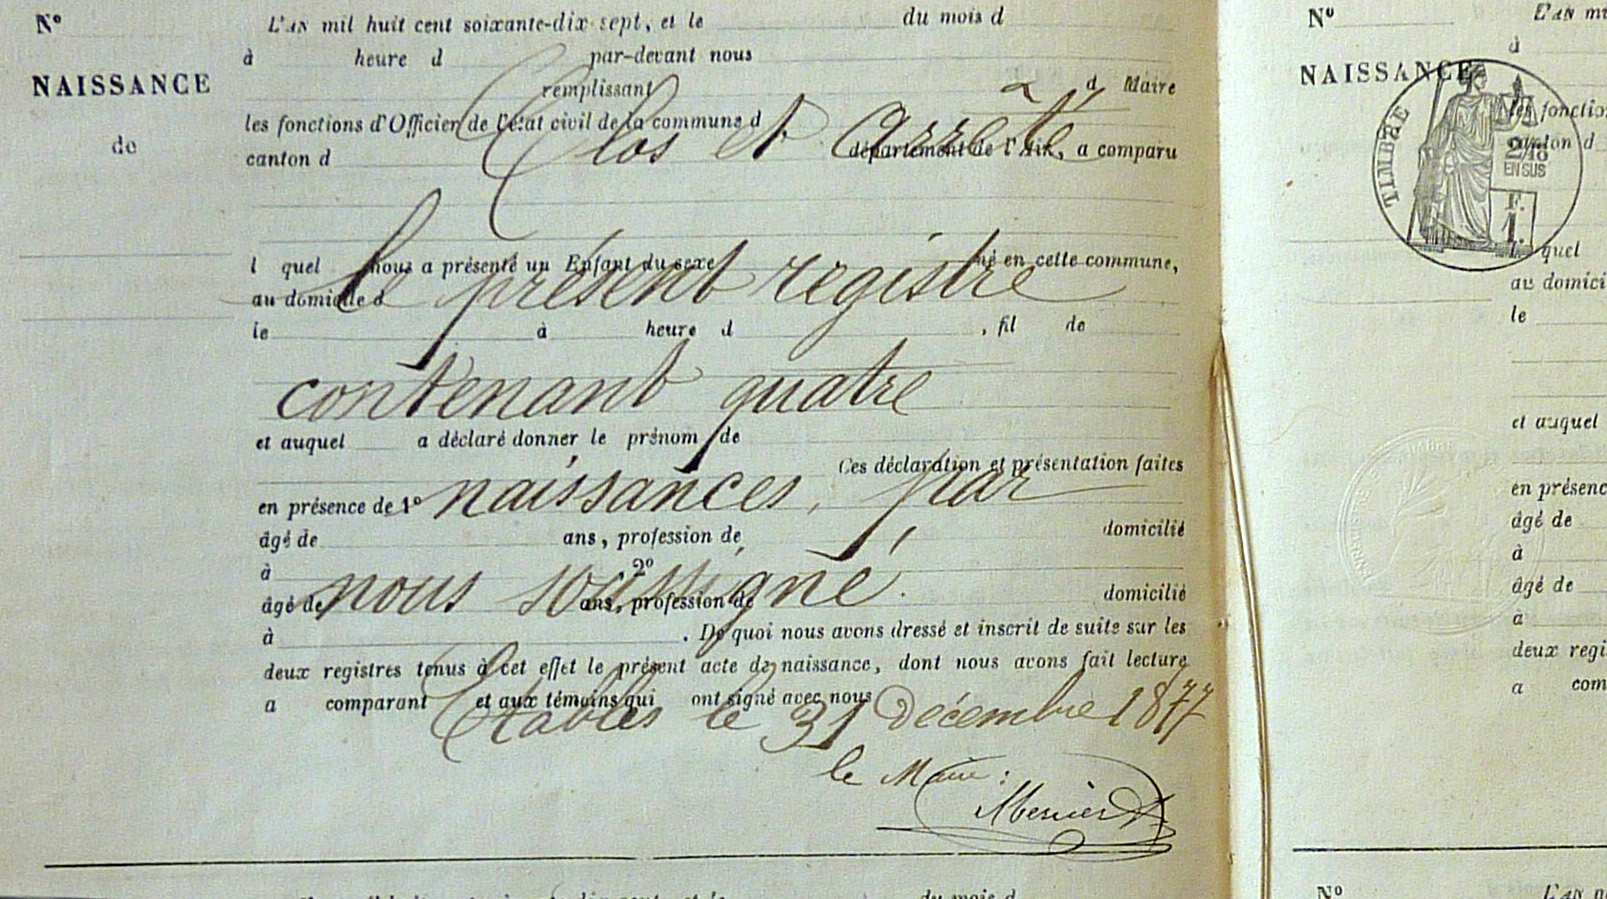 Nº
NAISSANCE
de
L'AN mil huit cent soixante-dix sept, et le du mois d
à heure d par-devant nous
remplissant d Maire
les fonctions d'Officier de l'état civil de la commune d
Clos et Arrêté
canton d département de l'Ain, a comparu
l quel nous a présenté un Enfant du sexe né en cette commune,
le présent registre
au domicile d
le à heure d , fil de
contenant quatre
et auquel a déclaré donner le prénom de
Ces déclaration et présentation faites
naissances, par
en présence de 1º
âgé de ans, profession de domicilié
à 2º
nous soussigné.
âgé de ans, profession de domicilié
à . De quoi nous avons dressé et inscrit de suite sur les
deux registres tenus à cet effet le présent acte de naissance, dont nous avons fait lecture
a comparant et aux témoins qui ont signé avec nous
Etables le 31 Décembre 1877
le Maire:
du mois d
Nº
L'AN
à
NAISSANCE
TIMBRE
2/10
EN SUS
F.
1.
les fonctio
canton d
quel
au domici
le
et auquel
en présenc
âgé de
à
âgé de
à
deux regi
a com
Nº
L'AN